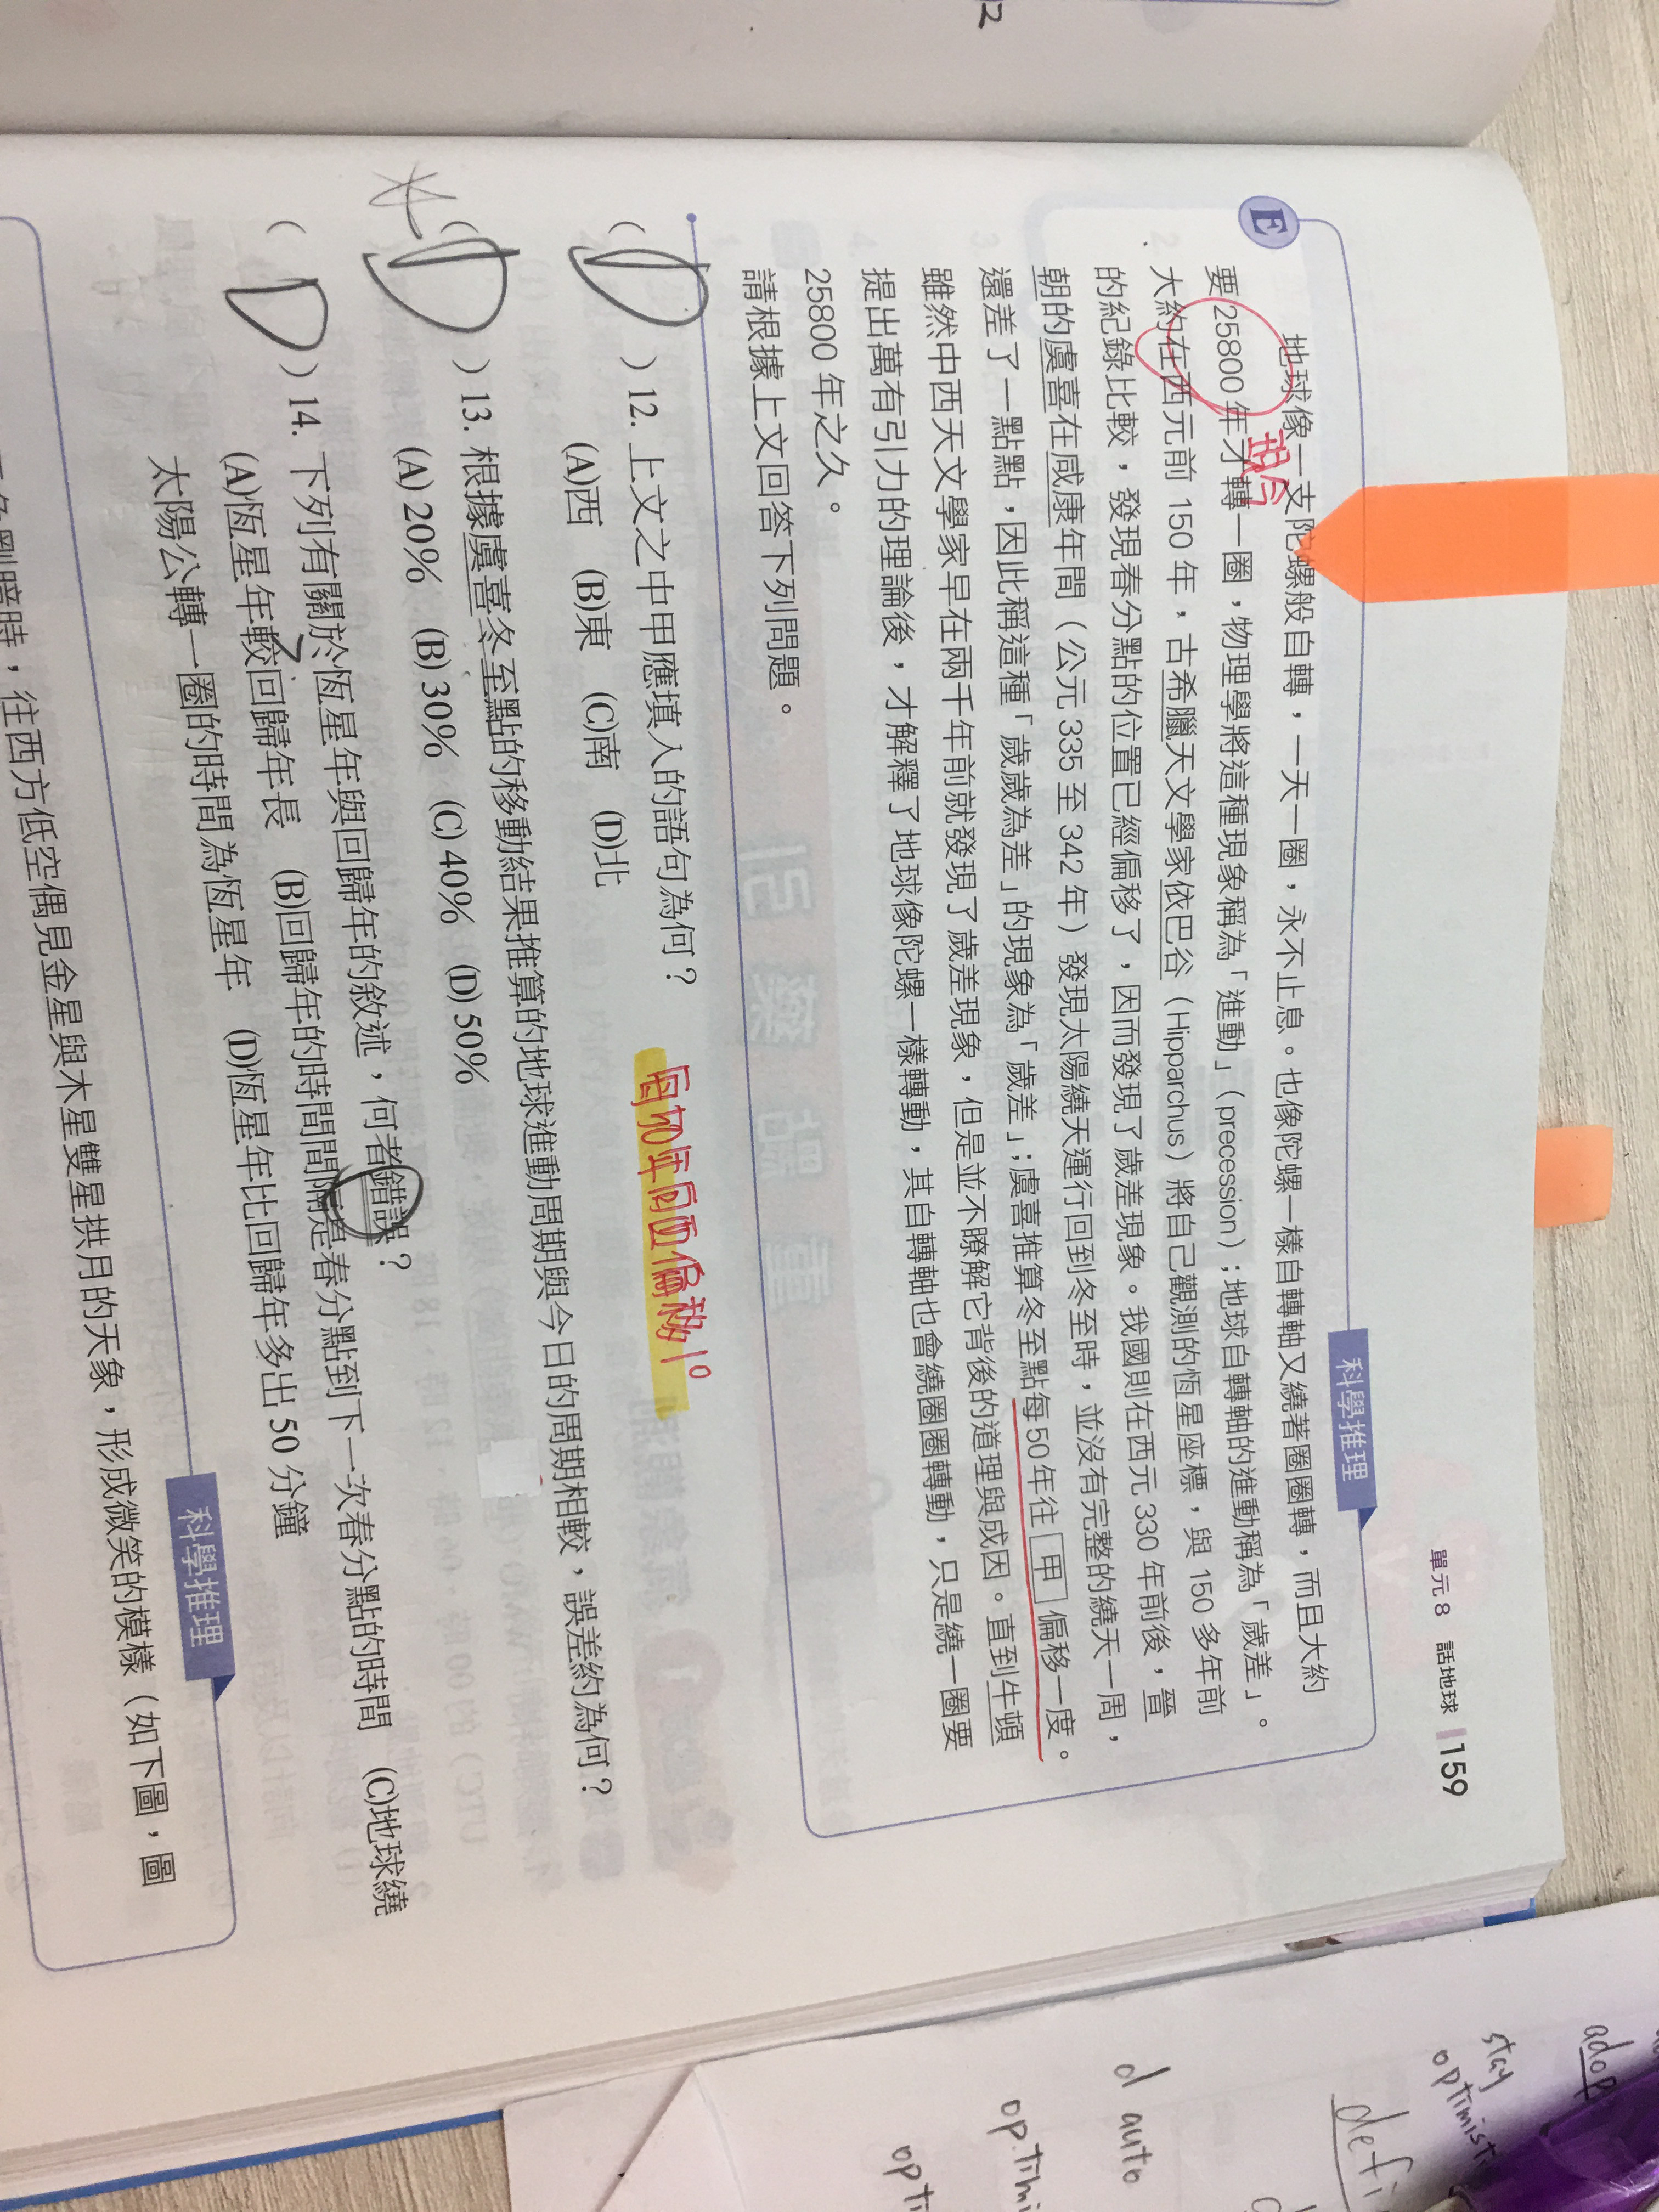 單元 8　話地球　159
科學推理
E
地球像一支陀螺般自轉，一天一圈，永不止息。也像陀螺一樣自轉軸又繞著圈圈轉，而且大約
要 25800 年才轉一圈，物理學將這種現象稱為「進動」（precession）；地球自轉軸的進動稱為「歲差」。
現今
大約在西元前 150 年，古希臘天文學家依巴谷（Hipparchus）將自己觀測的恆星座標，與 150 多年前
的紀錄比較，發現春分點的位置已經偏移了，因而發現了歲差現象。我國則在西元 330 年前後，晉
朝的虞喜在咸康年間（公元 335 至 342 年）發現太陽繞天運行回到冬至時，並沒有完整的繞天一周，
還差了一點點，因此稱這種「歲歲為差」的現象為「歲差」；虞喜推算冬至點每 50 年往 甲 偏移一度。
雖然中西天文學家早在兩千年前就發現了歲差現象，但是並不瞭解它背後的道理與成因。直到牛頓
提出萬有引力的理論後，才解釋了地球像陀螺一樣轉動，其自轉軸也會繞圈圈轉動，只是繞一圈要
25800 年之久。
請根據上文回答下列問題。
( D ) 12. 上文之中甲應填入的語句為何？
每50年向西偏移1°
(A)西　(B)東　(C)南　(D)北
( D ) 13. 根據虞喜冬至點的移動結果推算的地球進動周期與今日的周期相較，誤差約為何？
(A) 20%　(B) 30%　(C) 40%　(D) 50%
( D ) 14. 下列有關於恆星年與回歸年的敘述，何者錯誤？
(A)恆星年較回歸年長　(B)回歸年的時間間隔是春分點到下一次春分點的時間　(C)地球繞
太陽公轉一圈的時間為恆星年　(D)恆星年比回歸年多出 50 分鐘
科學推理
剛暗時，往西方低空偶見金星與木星雙星拱月的天象，形成微笑的模樣（如下圖，圖
2
adop
stay
optimist
defi
d auto
optimi
opti